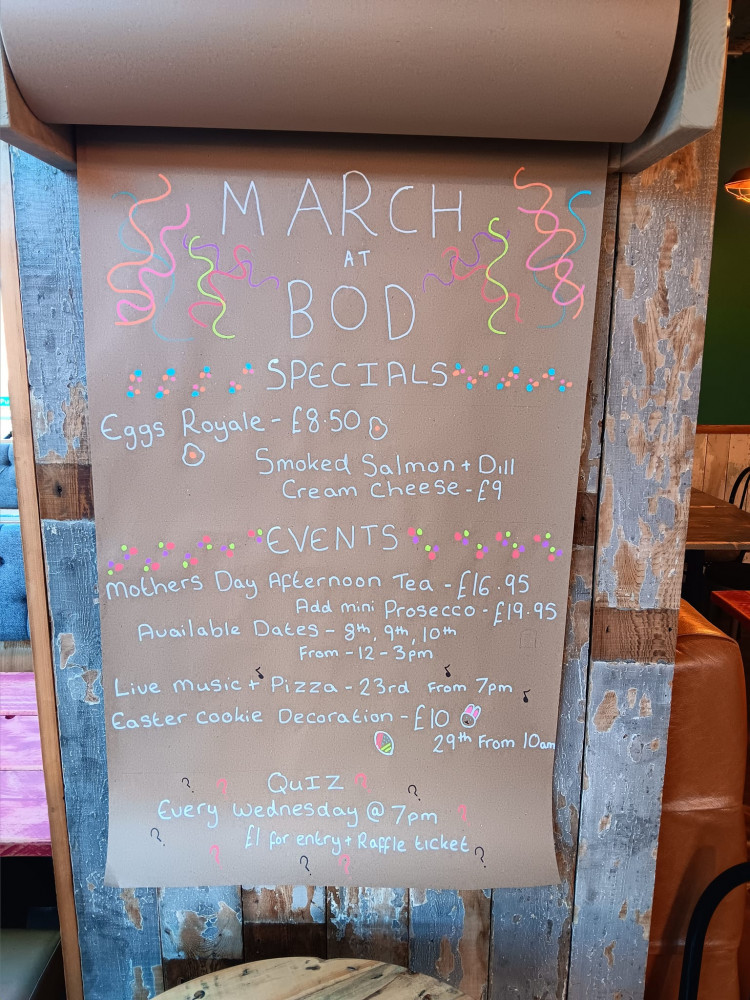 MARCH
AT
BOD
SPECIALS
Eggs Royale - £8.50
Smoked Salmon + Dill
Cream Cheese - £9
EVENTS
Mothers Day Afternoon Tea - £16.95
Add mini Prosecco - £19.95
Available Dates - 8th, 9th, 10th
From - 12 - 3pm
Live music + Pizza - 23rd From 7pm
Easter cookie Decoration - £10
29th From 10am
QuIZ
Every Wednesday @ 7pm
£1 for entry + Raffle ticket